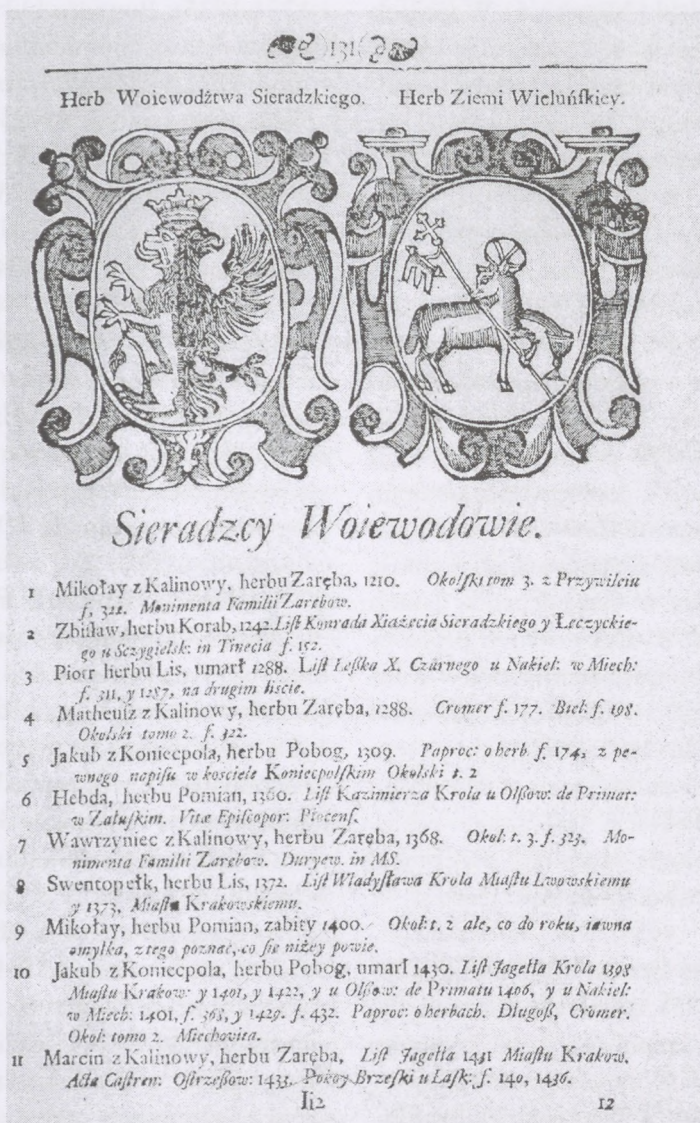 131
Herb Woiewodżtwa Sieradzkiego. Herb Ziemi Wieluńſkiey.
Sieradzcy Woiewodowie.
1 Mikołay z Kalinowy, herbu Zaręba, 1210. Okolſki tom 3. z Przywileiu
f. 322. Monimenta Familii Zarębow.
2 Zbiſław, herbu Korab, 1242. Liſt Konrada Xiążęcia Sieradzkiego y Łęczyckie-
go u Sczygielſk: in Tinecia f. 152.
3 Piotr herbu Lis, umarł 1288. Liſt Leßka X. Czarnego u Nakiel: w Miech:
f. 311, y 1287, na drugim liście.
4 Matheuſz z Kalinowy, herbu Zaręba, 1288. Cromer f. 177. Biel: f. 198.
Okolski tomo 2. f. 322.
5 Jakub z Koniecpola, herbu Pobog, 1309. Paproc: o herb. f. 174, z pe-
wnego napiſu w kościele Koniecpolſkim Okolſki t. 2
6 Hebda, herbu Pomian, 1360. Liſt Kazimierza Krola u Olßow: de Primat:
w Załuſkim. Vitæ Epiſcopor: Plocenſ.
7 Wawrzyniec z Kalinowy, herbu Zaręba, 1368. Okol: t. 3. f. 323. Mo-
nimenta Familii Zarębow. Duryew. in MS.
8 Swentopełk, herbu Lis, 1372. Liſt Władyſława Krola Miaſtu Lwowskiemu
y 1373, Miaſtu Krakowskiemu.
9 Mikołay, herbu Pomian, zabity 1400. Okol: t. 2 ale, co do roku, iawna
omyłka, z tego poznać, co ſię niżey powie.
10 Jakub z Koniecpola, herbu Pobog, umarł 1430. Liſt Jagełła Krola 1398
Miaſtu Krakow: y 1401, y 1422, y u Olßow: de Primatu 1406, y u Nakiel:
w Miech: 1401, f. 368, y 1429. f. 432. Paproc: o herbach. Długoß, Cromer.
Okol: tomo 2. Miechovita.
11 Marcin z Kalinowy, herbu Zaręba, Liſt Jagełła 1431 Miaſtu Krakow.
Acta Caſtren: Oſtrzeßow: 1433. Pokoy Brzeſki u Łaſk: f. 140, 1436.
Ii2 12